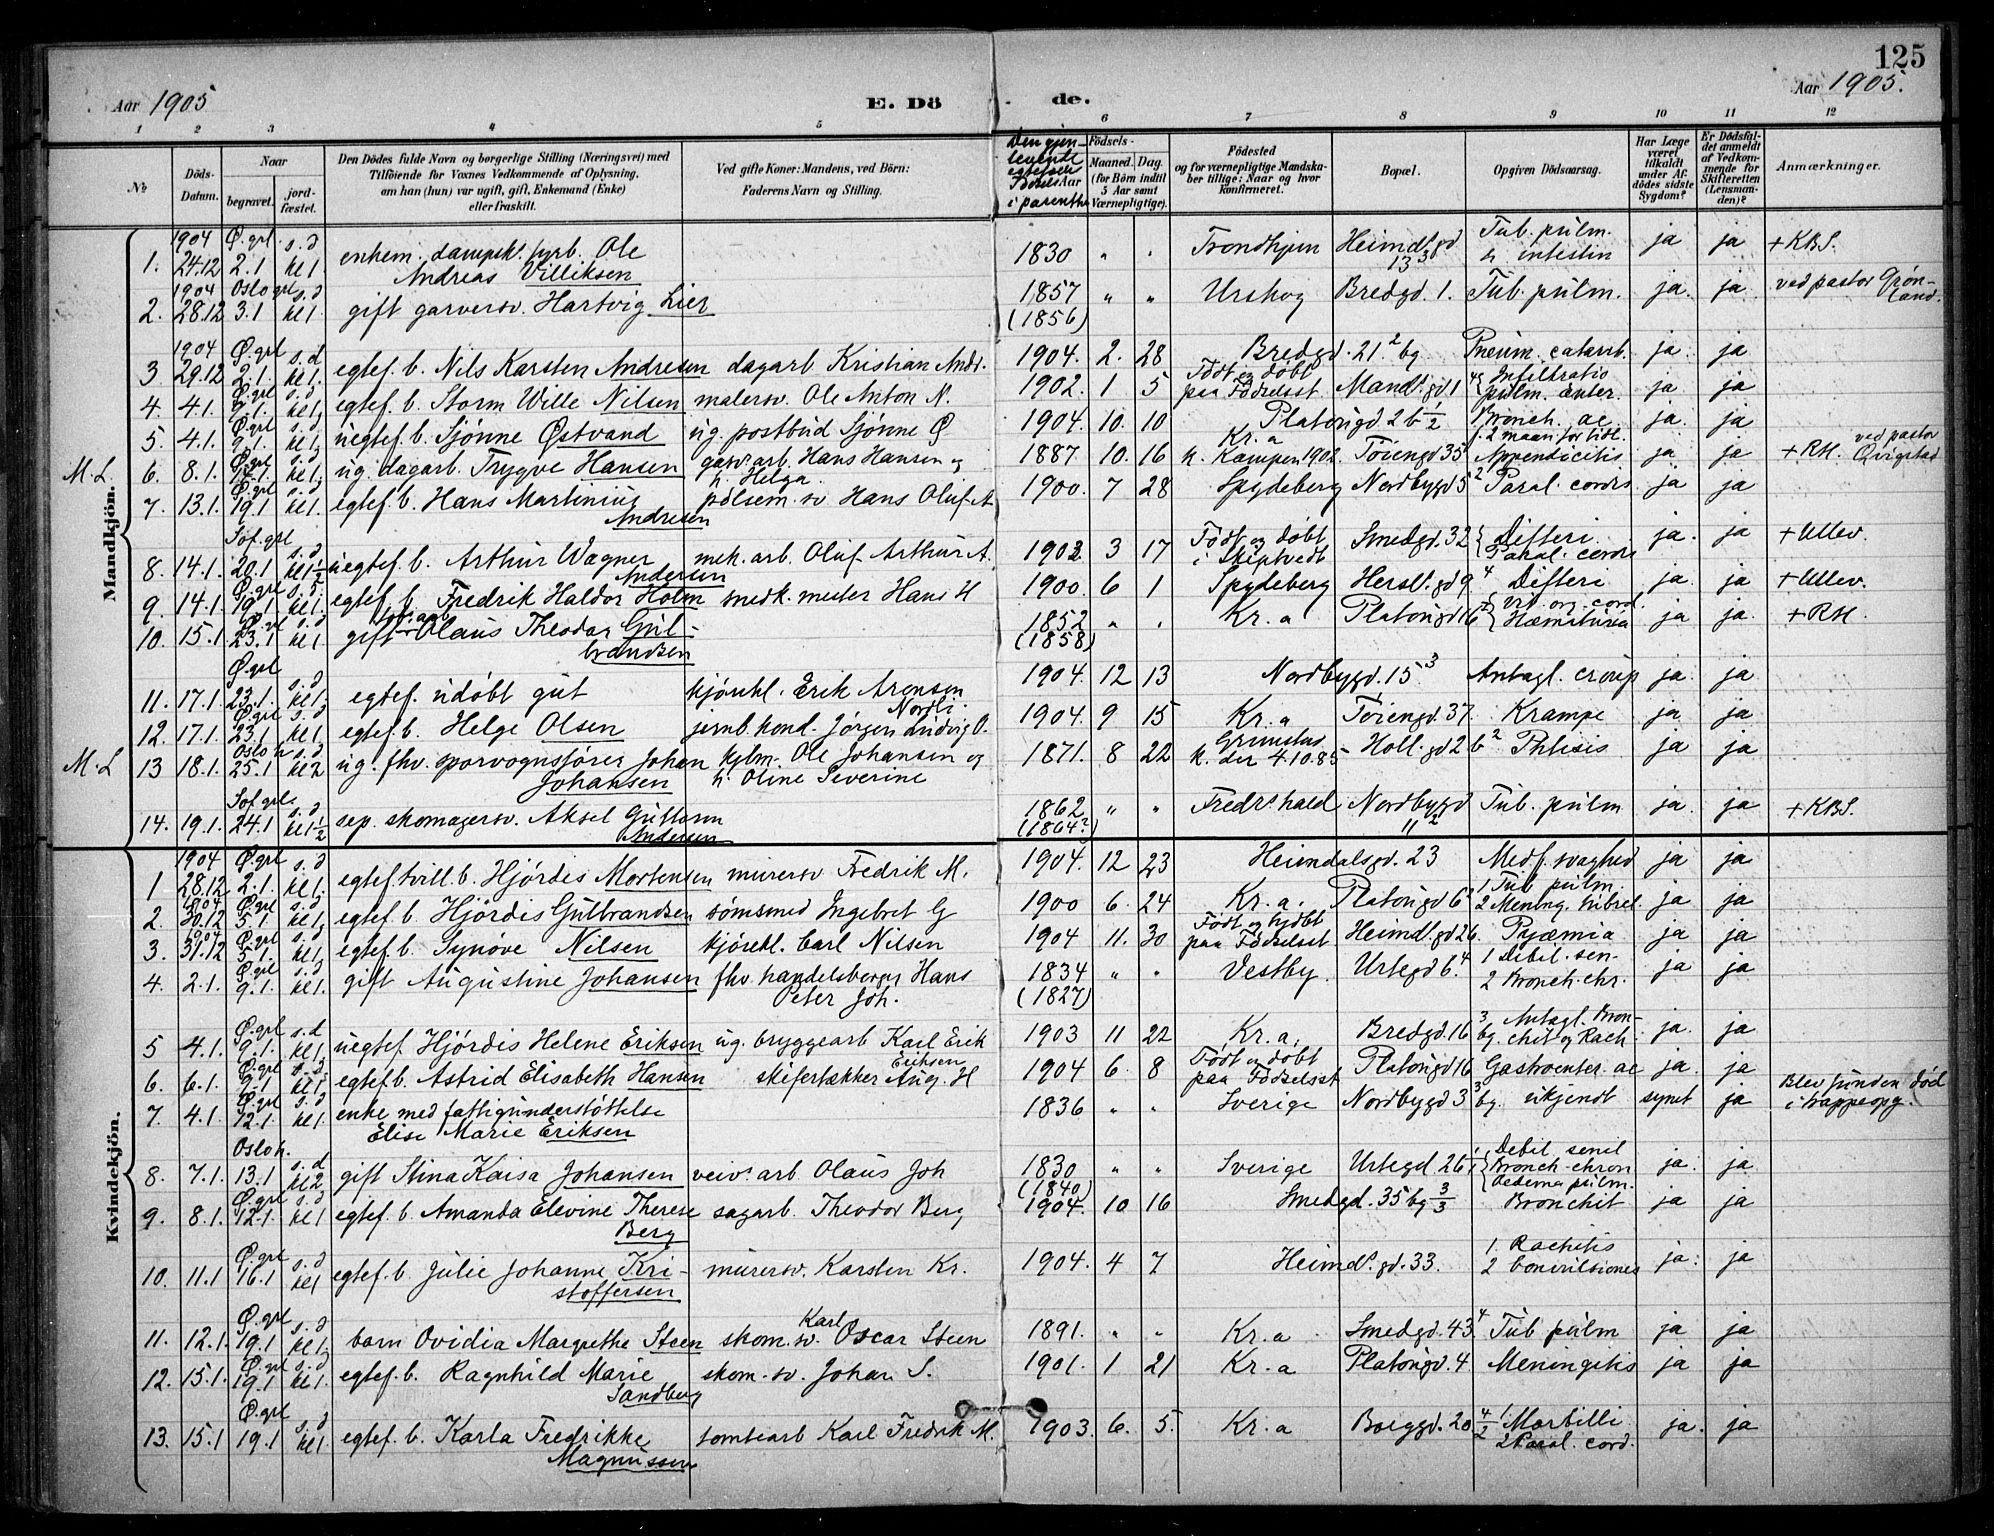 125
Aar 1905 E. Dö de. Aar 1905.
1 2 3 4 5 6 7 8 9 10 11 12
No Döds-Datum. Naar begravet. jordfæstet. Den Dödes fulde Navn og borgerlige Stilling (Næringsvei) med Tilföiende for Voxnes Vedkommende af Oplysning, om han (hun) var ugift, gift, Enkemand (Enke) eller fraskilt. Ved gifte Koner: Mandens, ved Börn: Faderens Navn og Stilling. Den gjenlevende Födsels-Aar i parenthes Födsels- Maaned. Dag. (for Börn indtil 5 Aar samt Værnepligtige). Födested og for værnepligtige Mandskaber tillige: Naar og hvor konfirmeret. Bopæl. Opgiven Dödsaarsag. Har Læge været tilkaldt under Afdödes sidste Sygdom? Er Dödsfaldet anmeldt af Vedkommende for Skifteretten (Lensmanden)? Anmærkninger.
Mandkjön.
1. 1904 24.12 Ø.grl 2.1 s.d kl 1. enkem. dampsk. fyrb. Ole Andreas Villiksen 1830 " " Trondhjem Heimdl.gd 13 3 Tub. pulm. & intestin ja ja + KBS.
2. 1904 28.12 Oslo grl 3.1 s.d kl 1. gift garversv. Hartvig Lier 1857 (1856) " " Urskog Bredgd. 1. Tub. pulm. ja. ja. ved pastor Grönland.
3 1904 29.12 Ø.grl 2.1. s.d kl 1. egtef. b. Nils Karsten Andresen dagarb Kristian Andr. 1904. 2. 28 Bredgd. 21 2 bg Pneum. catarrh. ja. ja
4. 4.1. Ø.grl 9.1. s.d kl 1 egtef. b. Storm Wille Nilsen malersv. Ole Anton N. 1902. 1 5 Födt og döbt paa Födselsst Mandl.gd 1 4 Infiltratio pulm. Enter. ja ja
5. 4.1. Ø.grl 9.1. s.d kl 1 uegtef. b. Sjönne Østvand ug. postbud Sjönne Ø 1904. 10. 10 Platousgd 2 b 1/2 Bronch. ac ja. ja
M. L 6. 8.1. Ø.grl 12.1. s.d kl 1. ug. dagarb. Trygve Hansen garv. arb. Hans Hansen og h. Helga 1887 10. 16 Kr.a k. Kampen 1902. Töiengd 35 2 maan for tidl. Appendicitis ja ja + RH. ved pastor Qvigstad
7. 13.1. Ø.grl 19.1 s.d kl 1. egtef. b. Hans Martinius Andresen pölsem. sv Hans Oluf A 1900. 7 28 Spydeberg Nordbygd 5 2 Paral. cordis ja ja
8. 14.1. Sof.grl 20.1 s.d kl 1 1/2 uegtef. b. Arthur Wagner Andersen mek. arb. Oluf Arthur A. 1902. 3 17 Födt og döbt i Skiptvedt Smedgd. 32 Difteri. Paral. cordis ja. ja + Ullev.
9 14.1. Ø.grl 19.1 s.d kl 1. egtef. b. Fredrik Haldor Holm snedk. mester Hans H 1900 6 1 Spydeberg Hersl.gd 9 4 Difteri ja. ja + Ullev.
10. 15.1 23.1 s.d kl 1. gift Olaus Theodor Gulbrandsen 1852 (1858) " " Kr.a Platousgd 16 Vit. org. cord. Hæmaturia ja ja. + RH.
11. 17.1 Ø.grl 23.1. s.d kl 1. egtef. udöbt gut kjörekl. Erik Aronsen Nordli. 1904. 12 13 Nordbygd. 15 3 Antagl. croup ja. ja
12. 17.1. Ø.grl 23.1 s.d kl 1. egtef. b. Helge Olsen jernb. kond. Jörgen Ludvig O. 1904. 9 15 Kr.a Töiengd. 37. Krampe ja ja
M. L 13 18.1. Oslo h 25.1 s.d kl 2 ug. fhv. sporvognsförer Johan Johansen kjbm. Ole Johansen og h. Oline Severine 1871. 8 22 Grimstad k. der 4.10.85 Holl.gd 2 b 2 Phtisis ja ja
14. 19.1. Sof.grl. 24.1 s.d kl 1 1/2 sep. skomagersv. Aksel Guttorm Andersen 1862 (1864?) " " Fredr.hald Nordbygd 11 2 Tub. pulm ja. ja + KBS.
Kvindekjön.
1 1904 28.12 Ø.grl 2.1. s.d kl 1. egtef. tvill. b. Hjördis Mortensen murersv Fredrik M. 1904. 12 23 Heimdalsgd. 23 Medf. svaghed ja ja
2. 1904 30.12 Ø.grl 5.1 s.d kl 1 egtef. b. Hjördis Gulbrandsen sömsmed Ingebret G 1900 6. 24 Kr.a. Platousgd 6 2 1 Tub pulm. 2 Mening. tubrel. ja ja
3. 1904 31.12 Ø.grl 5.1. s.d kl 1. egtef. b. Synöve Nilsen kjörekl. Carl Nilsen 1904 11. 30 Födt og hjdöbt paa Födselsst Heimdl.gd 26. Pyæmia ja ja
4. 2.1. Ø.grl 9.1. s.d kl 1. gift Augustine Johansen fhv. handelsborger Hans Peter Joh. 1834 (1827) " " Vestby. Urtegd 6. 4 1 Debil. sen- 2 Bronch. chr. ja ja
5 4.1. Ø.grl 9.1. s.d kl 1 uegtef. Hjördis Helene Eriksen ug. bryggearb Karl Erik Eriksen 1903 11 22 Kr.a. Bredgd. 16 3 bg. Antagl. Bronchit og Rach ja. ja
6. 6.1. Ø.grl 9.1 s.d. kl 1 egtef. b. Astrid Elisabeth Hansen skifertækker Aug. H 1904 6. 8 Födt og döbt paa Födselsst. Platousgd 16 Gastroenter. ac ja. ja
7. 4.1. Ø.grl 12.1. s.d kl 1. enke med fattigunderstöttelse Elise Marie Eriksen 1836 " " Sverige Nordbygd 3 3 bg. ukjendt synet ja Blev funden död i trappeopg.
8. 7.1. Oslo h. 13.1 s.d kl 2 gift Stina Kaisa Johansen veiv. arb Olaus Joh 1830 (1840) " " Sverige Urtegd 26 Debil. senil Bronch. chron Oedema pulm. ja. ja
9. 8.1. Ø.grl 12.1. s.d kl 1 egtef. b. Amanda Elevine Therese Berg sagarb. Theodor Berg 1904. 10 16 Smedgd. 35 bg 3/3 Bronchit ja ja
10. 11.1 Ø.grl 16.1 s.d kl 1 egtef. b. Julie Johanne Kristoffersen murersv. Karsten Kr. 1904. 4 7 Heimdl.gd. 33. 1. Rachitis 2 Convulsiones ja. ja
11. 12.1. Ø.grl 19.1 s.d kl 1. barn Ovidia Margrethe Steen skom. sv. Karl Oscar Steen 1891. " " Kr.a Smedgd. 43 4 Tub pulm ja ja
12. 15.1. Ø.grl 19.1 s.d kl 1. egtef. b. Ragnhild Marie Sandberg skom. sv. Johan S. 1901. 1 21 Kr.a Platougd. 4 Meningitis ja ja
13. 15.1 Ø.grl 19.1 s.d kl 1 egtef. b. Karla Fredrikke Magnussen tomtearb Karl Fredrik M. 1903. 6. 5. Kr.a Borggd. 20 4/2 1 Morbilli 2 Paral. cord. ja. ja